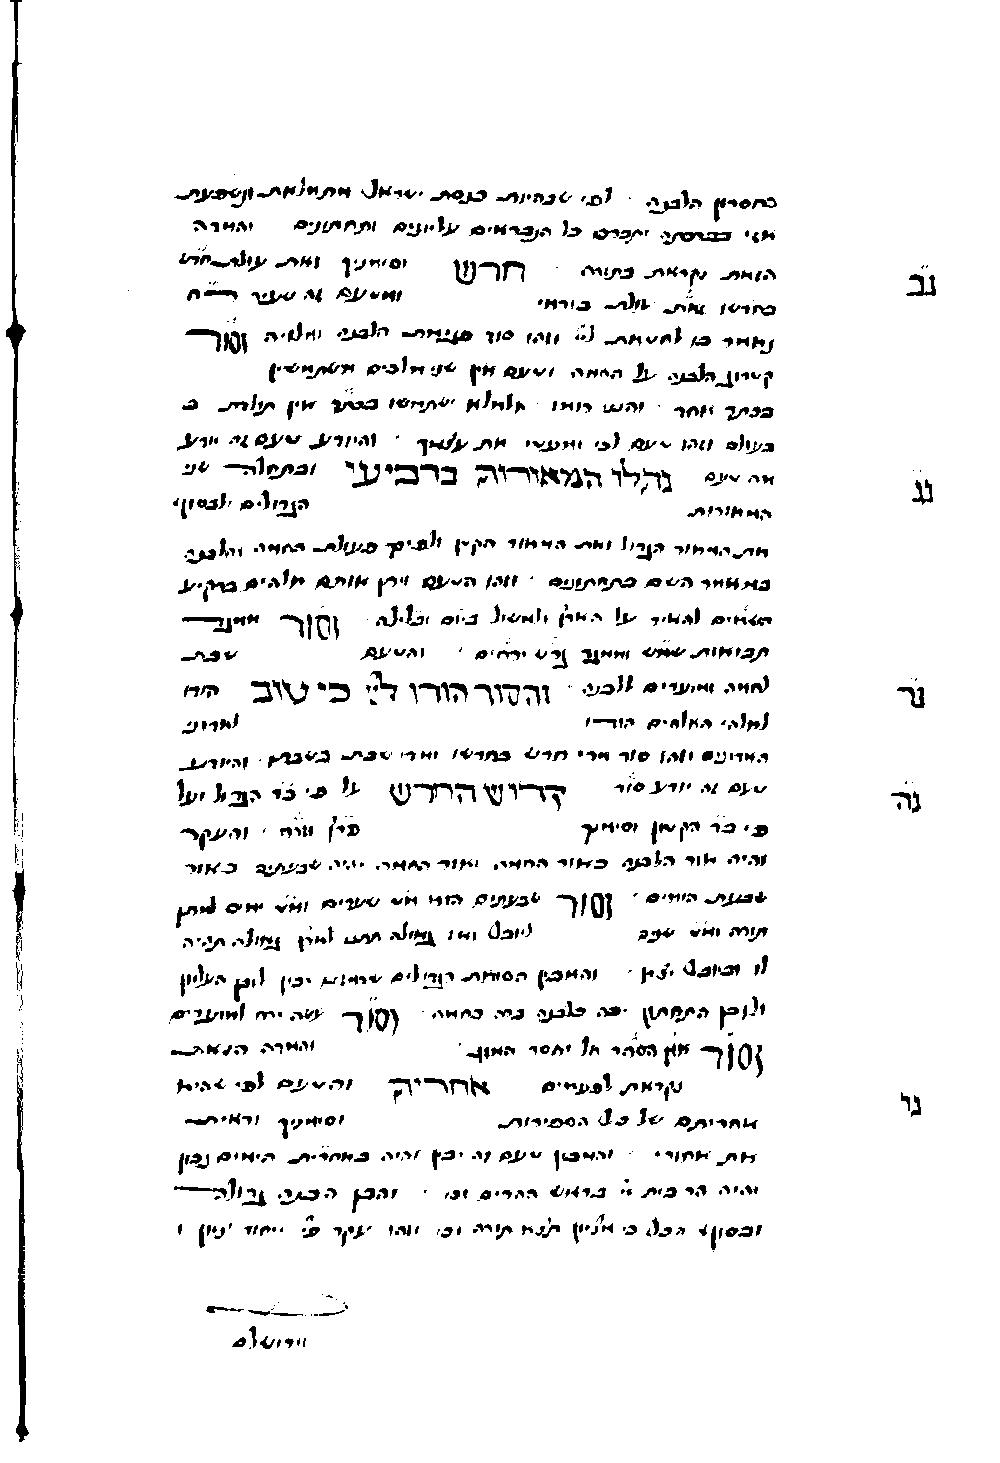 בחסרון הלבנה לפי שבהיות כנסת ישראל מתמלאת ונשפעת
אזי בברכתה יתברכו כל הנבראים עליונים ותחתונים והמדה
הזאת נקראת בתורה חדש וסימניך זאת עולת חדש נב
בחדשו זאת עולת בוראי ומטעם זה שעיר ר״ח
נאמר בו לחטאת ליי׳ וזהו סוד פגימת הלבנה ומלויה וסוד
קטרוג הלבנה על החמה וטעם אין שני מלכים משתמשין
בכתר אחד אלמלא ישתמשו בכתר אין תולדת
בעולם וזהו טעם לכי ומעטי את עצמך והיודע טעם זה יודע
מה טעם נתלו המאורות ברביעי ובתחלה שני נג
המאורות הגדולים ולבסוף
את המאור הגדול ואת המאור הקטן ולפיכך פעולת החמה והלבנה
במאמר השם בתחתונים וזהו הטעם ויתן אותם אלהים ברקיע
השמים להאיר על הארץ ולמשול ביום ובלילה וסוד ממגד
תבואות שמש וממגד גרש ירחים והטעם שבת
לחמה ומועדים ללבנה והסוד הודו ליי׳ כי טוב הודו נד
לאלהי האלהים הודו לאדוני
האדונים וזהו סוד מדי חדש בחדשו ומדי שבת בשבתו והיודע
טעם זה יודע סוד קדוש החדש על פי ב״ד הגדול ועל נה
פי ב״ד הקטן וסימניך פרץ וזרח והעקר
והיה אור הלבנה כאור החמה ואור החמה יהיה שבעתים כאור
שבעת הימים וסוד שבעתים הוא מ״ט שערים ומ״ט ימים למתן
תורה ומ״ט שנה ליובל ואז גאולה תתנו לארץ גאולה תהיה
לו וביובל יצא והמבין הסודות הגדולים שרמזנו יבין לובן העליון
ולובן התחתון יפה כלבנה ברה כחמה וסוד עשה ירח למועדים
וסוד אגן הסהר אל יחסר המזג והמדה הזאת
נקראת לפעמים אחרית והטעם לפי שהיא נו
אחריתם של כל הספירות וסימניך וראית
את אחורי והמבין טעם זה יבין והיה באחרית הימים נכון
יהיה הר בית יי׳ בראש ההרים וכו׳ והבן הבנה גדולה
ובסוף הכל כי מציון תצא תורה וכו׳ וזהו עקר
וירושלם